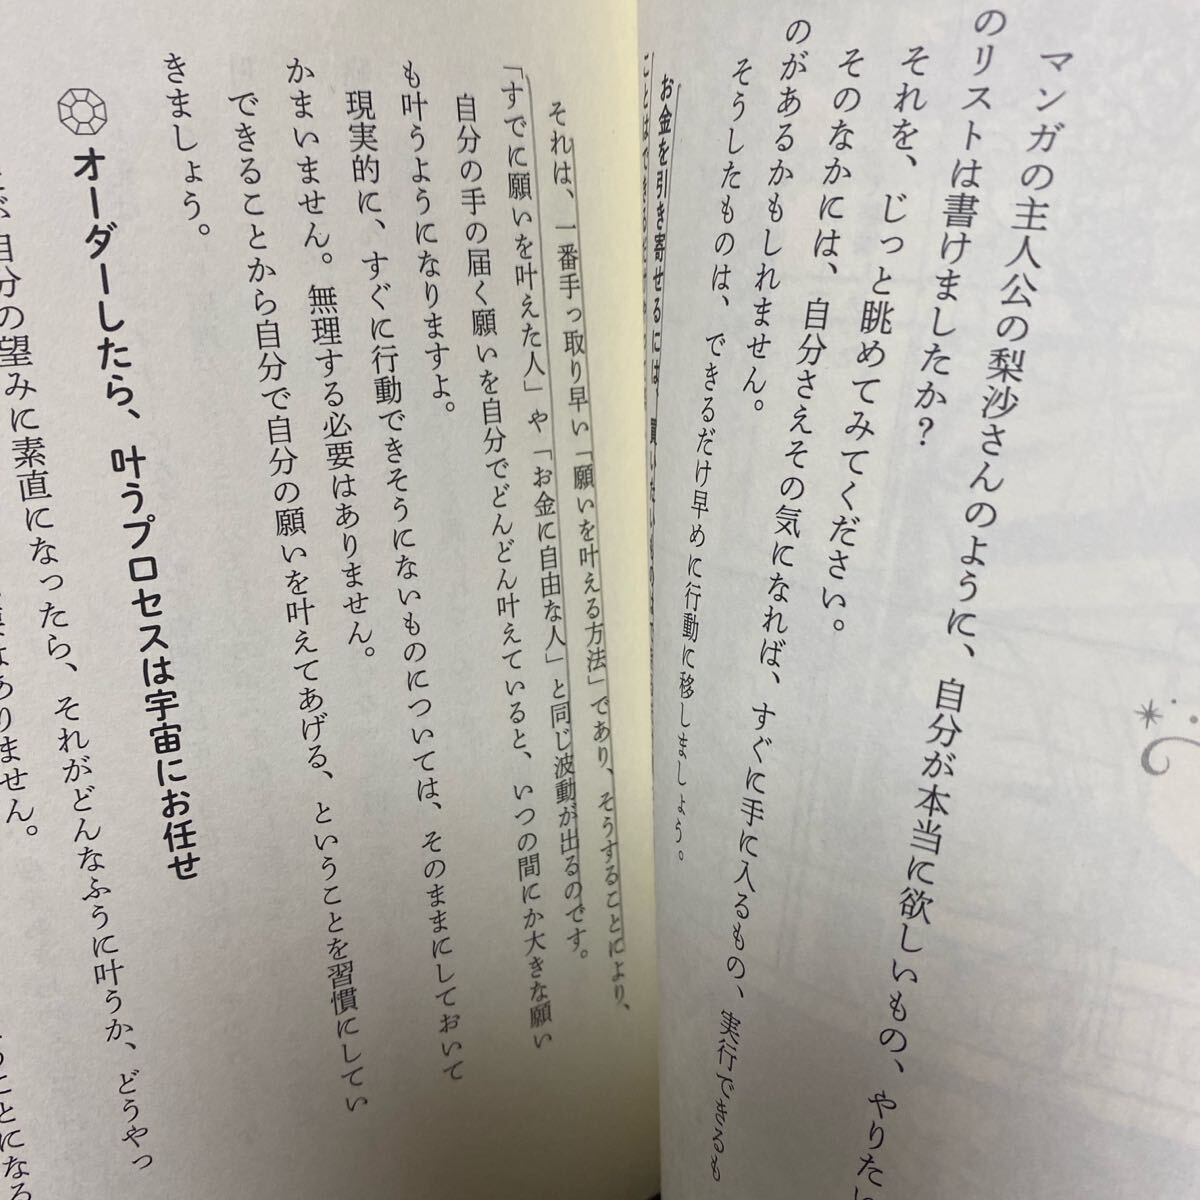 マンガの主人公の梨沙さんのように、自分が本当に欲しいもの、やりたい
のリストは書けましたか？
それを、じっと眺めてみてください。
そのなかには、自分さえその気になれば、すぐに手に入るもの、実行できるも
のがあるかもしれません。
そうしたものは、できるだけ早めに行動に移しましょう。
お金を引き寄せるには、買いたいもの
ことはできるだけや
それは、一番手っ取り早い「願いを叶える方法」であり、そうすることにより、
「すでに願いを叶えた人」や「お金に自由な人」と同じ波動が出るのです。
自分の手の届く願いを自分でどんどん叶えていると、いつの間にか大きな願い
も叶うようになりますよ。
現実的に、すぐに行動できそうにないものについては、そのままにしておいて
かまいません。無理する必要はありません。
できることから自分で自分の願いを叶えてあげる、ということを習慣にしてい
きましょう。
オーダーしたら、叶うプロセスは宇宙にお任せ
自分の望みに素直になったら、それがどんなふうに叶うか、どうやっ
はありません。
ことになる